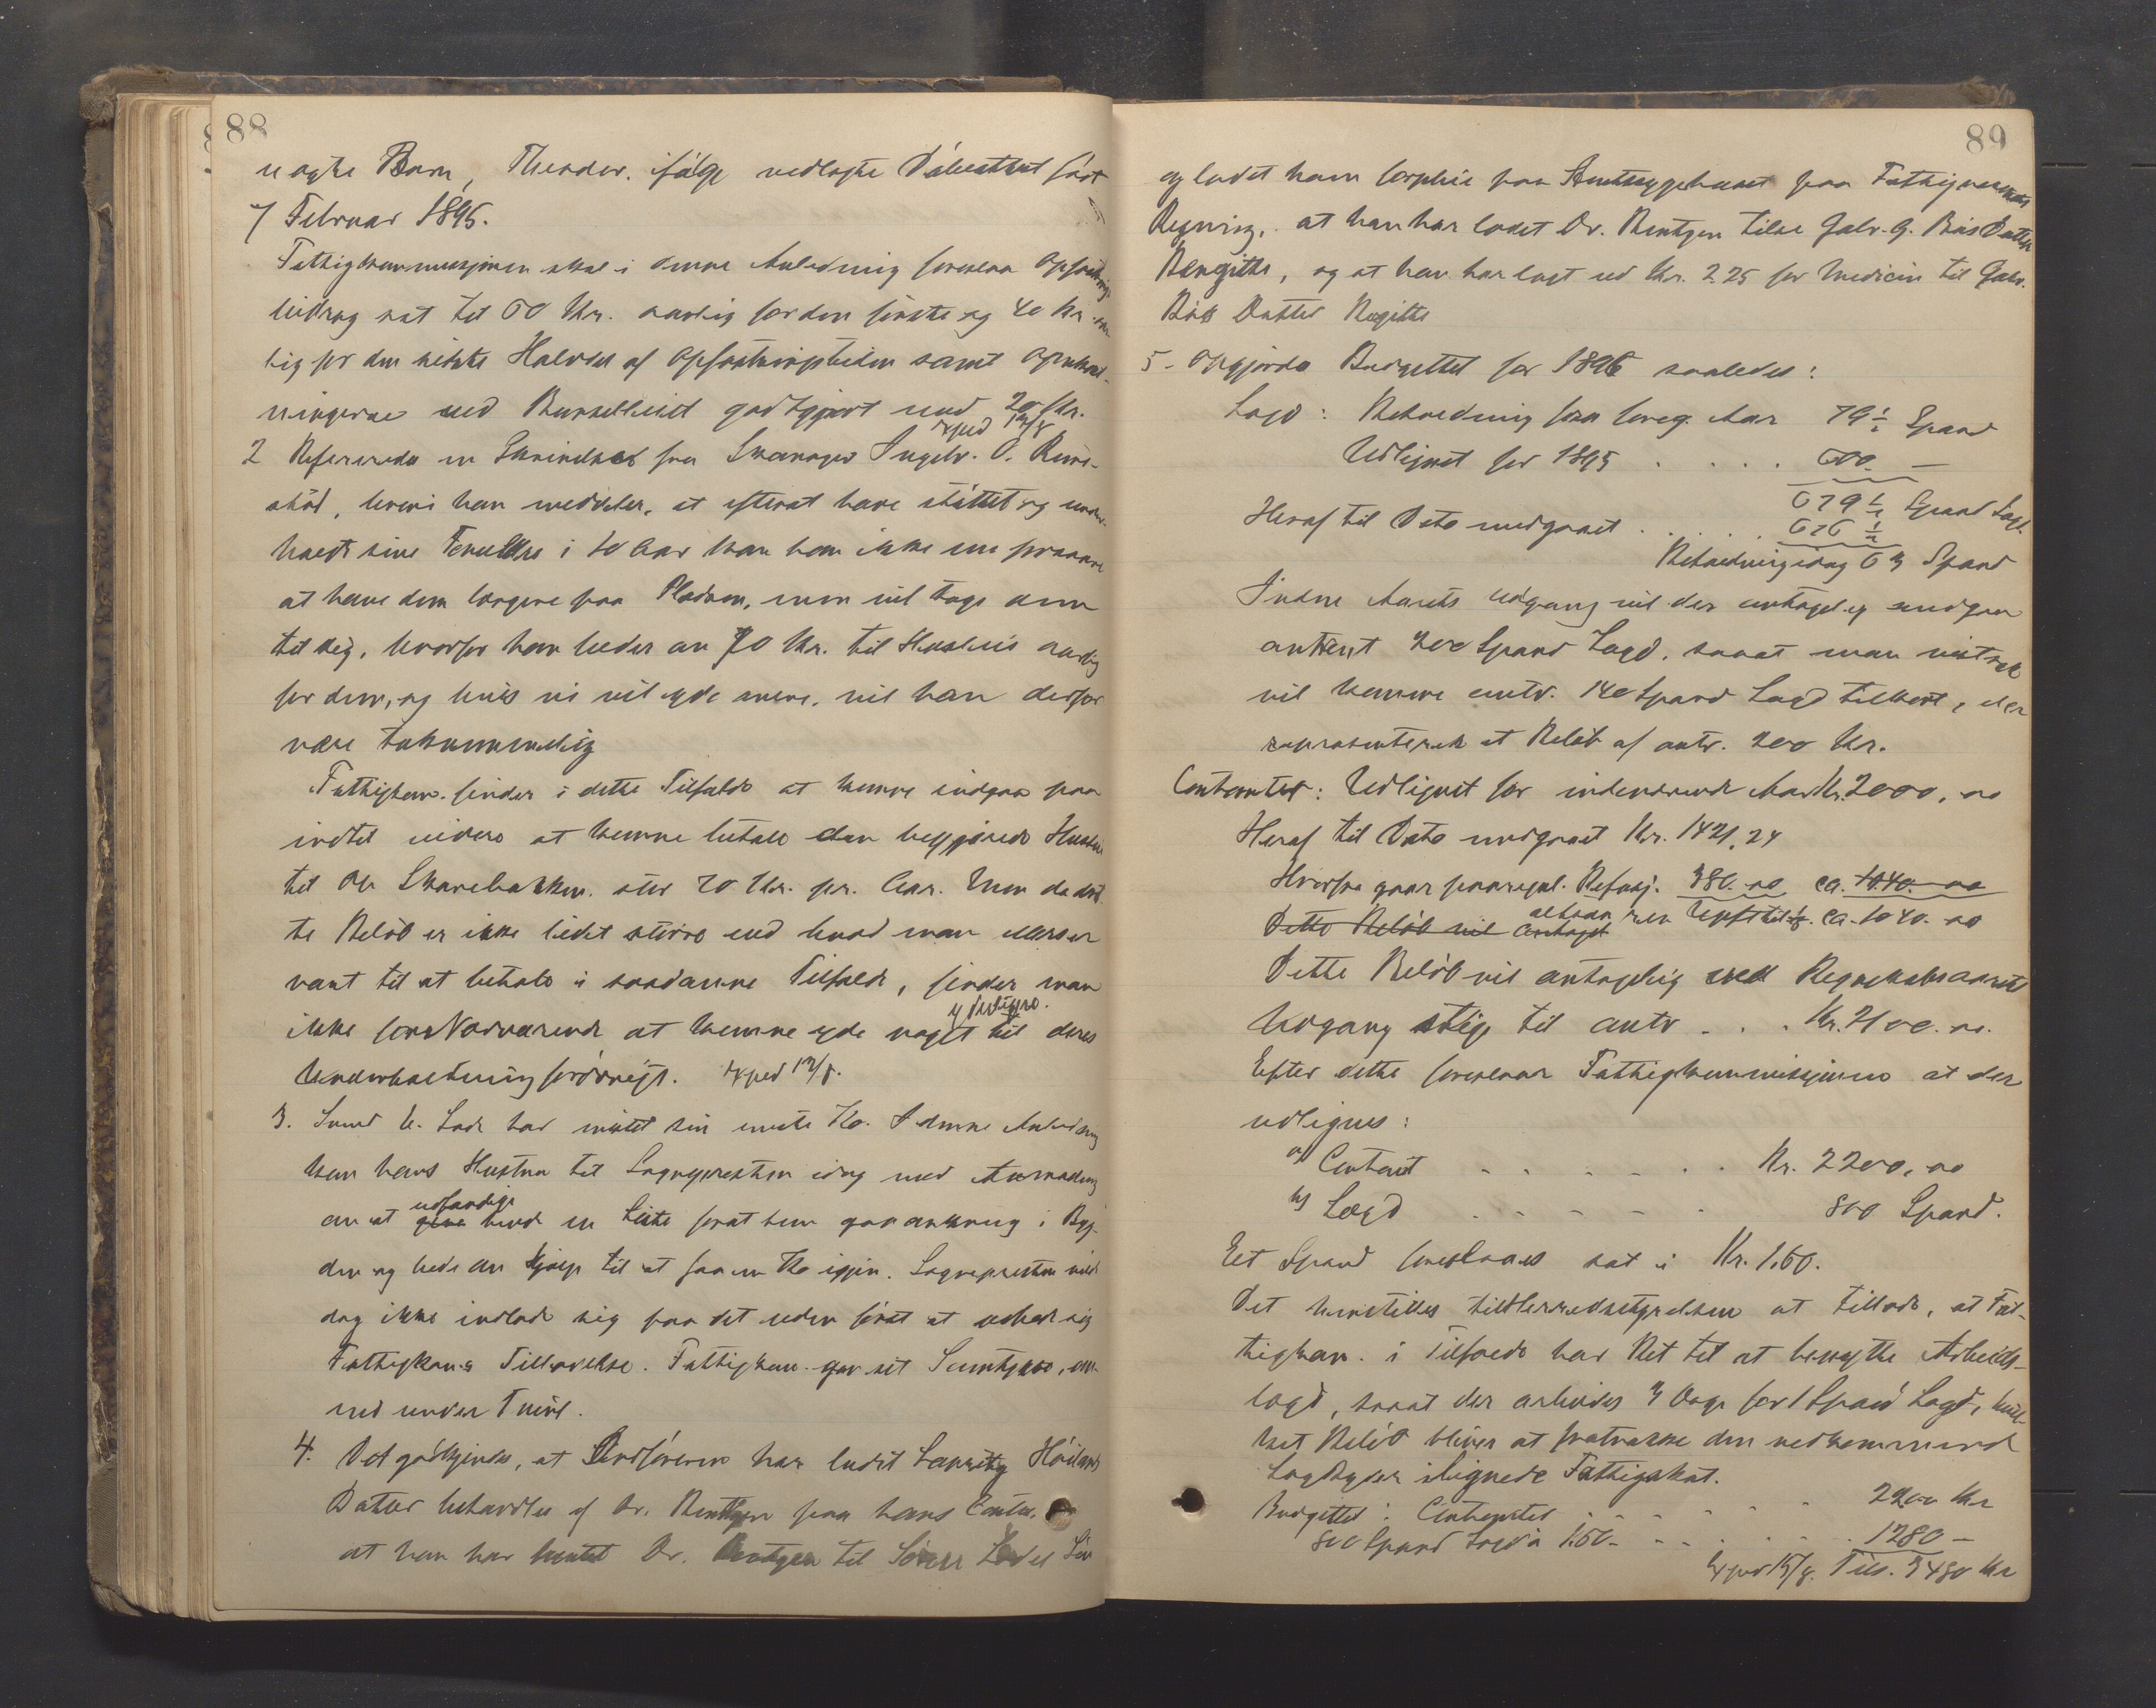 88
uægte Barn, Theodor, ifølge vedlagte Dåbsattest født
7 Februar 1895.
Fattigkommisjonen skal i denne Anledning foreslaa Opfostrings
bidrag sat til 60 Kr. aarlig for den første og 40 Kr. aar
lig for den sidste Halvdel af Opfostringstiden samt Omkost-
ningerne ved Barselleiet godtgjort med 20 Kr.
Exped 12/8
2 Refereredes en Skrivelse fra Skavager Ingebr. O.
hvori han meddeler, at efterat have støttet og under-
holdt sine Forældre i 10 Aar kan han ikke se
at have dem længere paa Pladsen, men vil tage dem
til sig, hvorfor han beder om 70 Kr. til Husleie aarlig
for dem, og hvis vi vil yde mere, vil han derfor
være taknemmelig
Fattigkom. finder i dette Tilfælde at kunne indgaa paa
indtil videre at kunne betale den begjærede Husleie
til Ole Skarebakken stor 70 Kr. pr. Aar. Men da det
te Beløb er ikke lidet større end hvad man ellers er
vant til at betale i saadanne Tilfælde, finder man
ikke for Nærværende at kunne yde noget yderligere til deres
Underholdning forøvrigt. Exped 12/8.
3. Svend U. Lode har mistet sin eneste Ko. I denne Anledning
kom hans Hustru til Sognepresten idag med Anmodning
om at udfærdige hende en Liste forat hun gaa omkring i Byg-
den og bede om Hjælp til at faa en Ko igjen. Sognepresten vilde
dog ikke indlade sig paa det uden først at udbede sig
Fattigkom.s Tilladelse. Fattigkom. gav sit Samtykke, om
end under Tvivl.
4. Det godkjendes, at Ordføreren har ladet Lauritz Høilands
Datter behandles af Dr. Rentgen paa hans Contor,
at han har hentet Dr. Rentgen til Søren Lodes Søn
89
og ladet ham forpleie paa Amtssygehuset paa Fattigvæsenets
Regning, at han har ladet Dr. Rentgen tilse Gabr. G. Bøs Datter
Bergitte, og at han har lagt ud Kr. 2.25 for Medicin til Gabr.
Bøs Datter Bergitte
5. Opgjordes Budgettet for 1896 saaledes:
Lægd: Beholdning fra foreg. Aar 79 1/2 Spand
Udlignet for 1895 . . . . 600 —
679 1/2 Spand Lægd
Heraf til Dato medgaaet . . . 616 1/2
Beholdning idag 63 Spand
Inden Aarets Udgang vil der antagelig medgaa
omtrent 200 Spand Lægd, saaat man
vil komme omtr. 140 Spand Lægd tilkort, der
repræsenterer et Beløb af omtr. 200 Kr.
Contanter: Udlignet for indeværende Aar Kr. 2000,00
Heraf til Dato medgaaet Kr. 1421,24
Hvorfra gaar paaregnl. Refusj. 380.00 ca. 1040.00
Dette Beløb vil antagel altsaa ren Udgift til 1/8. ca. 1040.00
Dette Beløb vil antagelig ved Regnskabsaarets
Udgang stige til omtr . . . Kr. 2100.00.
Efter dette foreslaar Fattigkommisjonen at der
udlignes:
a) Contant . . . . . . Kr. 2200,00
b) Lægd . . . . . 800 Spand.
Eet Spand foreslaaes sat i Kr. 1.60.
Det henstilles til Herredsstyrelsen at tillade, at Fat-
tigkom. i Tilfælde har Ret til at benytte Arbeids-
lægd, saaat der arbeides 3 Dage for 1 Spand Lægd, hvil-
ket Beløb bliver at fratrække den vedkommende
Lægdsyder ilignede Fattigskat.
Budgettet: Contanter . . . . . 2200 Kr
800 Spand Lægd à 1.60 . . . . . . 1280 —
Exped 15/8. Tils. 3480 Kr